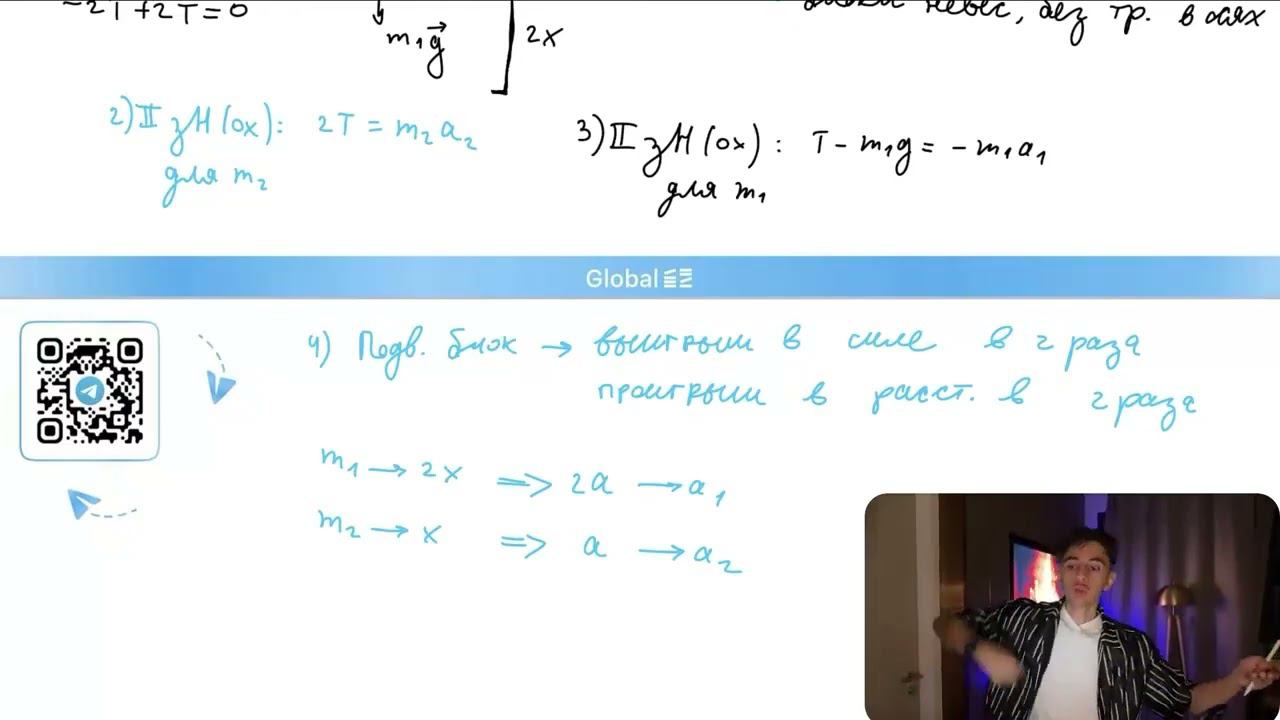 -2T+2T=0
m₁g⃗
2x
блоки невес, без тр. в осях
2) II зН (ox): 2T = m₂a₂
для m₂
3) II зН (ox): T - m₁g = -m₁a₁
для m₁
Global EE
4) Подв. блок → выигрыш в силе в 2 раза
проигрыш в расст. в 2 раза
m₁ → 2x => 2a → a₁
m₂ → x => a → a₂